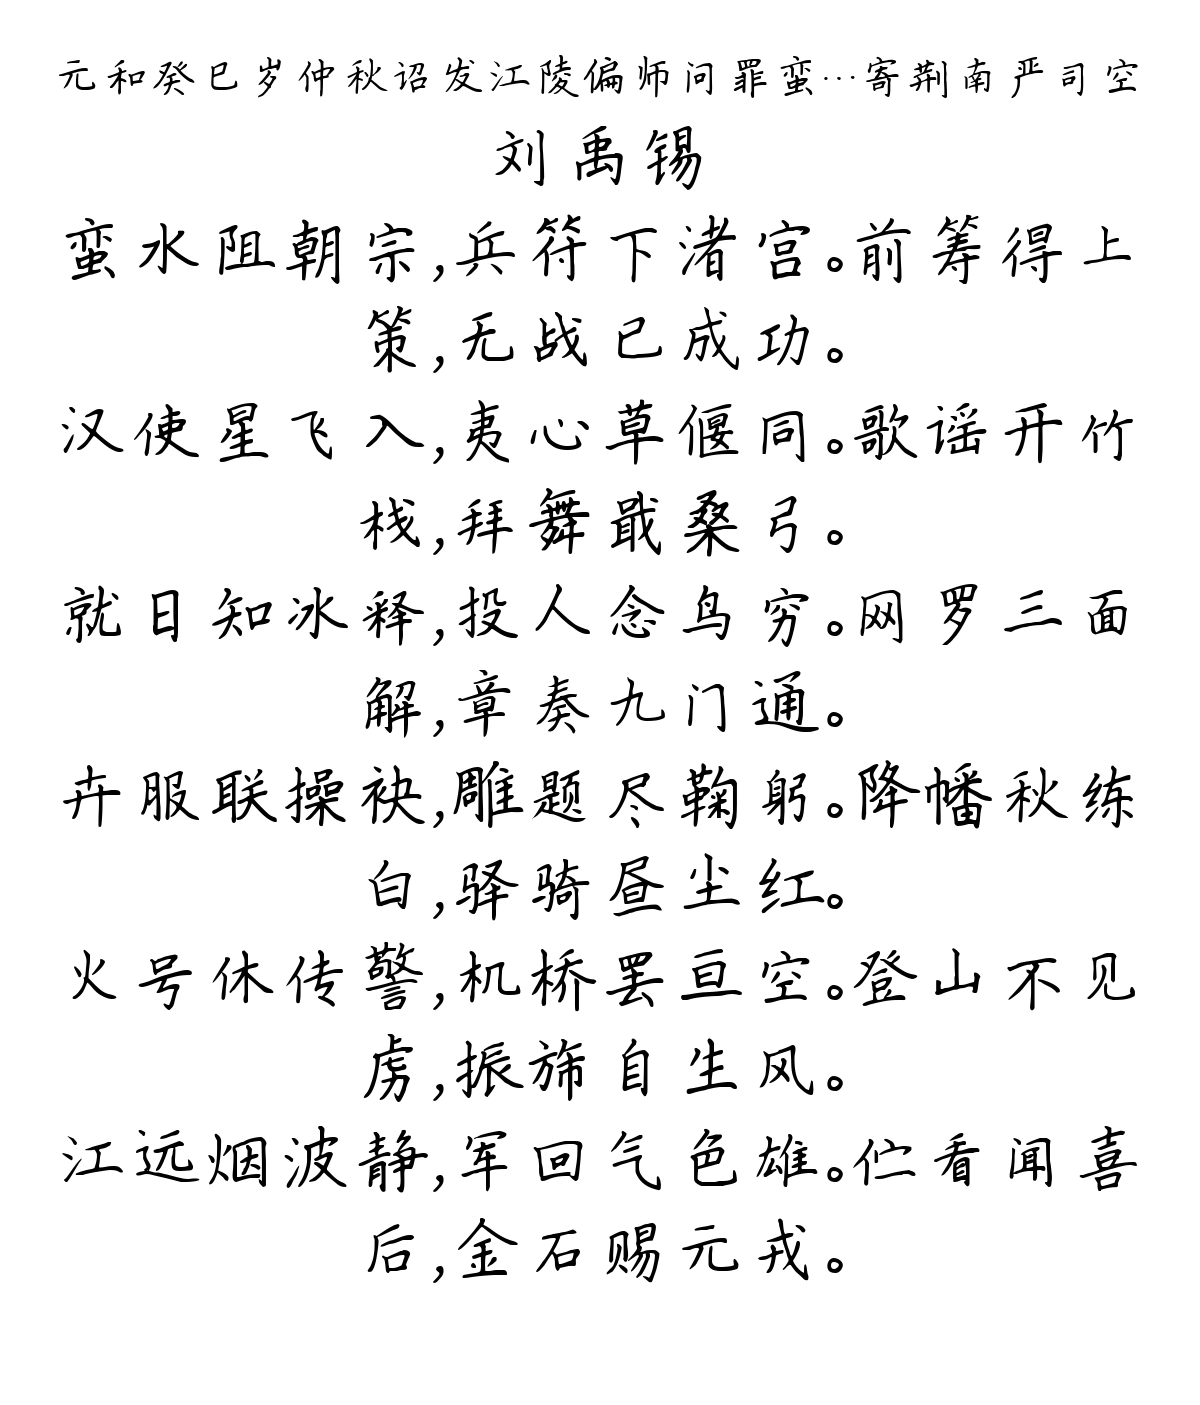 元和癸巳岁仲秋诏发江陵偏师问罪蛮…寄荆南严司空
刘禹锡
蛮水阻朝宗,兵符下渚宫。前筹得上
策,无战已成功。
汉使星飞入,夷心草偃同。歌谣开竹
栈,拜舞戢桑弓。
就日知冰释,投人念鸟穷。网罗三面
解,章奏九门通。
卉服联操袂,雕题尽鞠躬。降幡秋练
白,驿骑昼尘红。
火号休传警,机桥罢亘空。登山不见
虏,振旆自生风。
江远烟波静,军回气色雄。伫看闻喜
后,金石赐元戎。